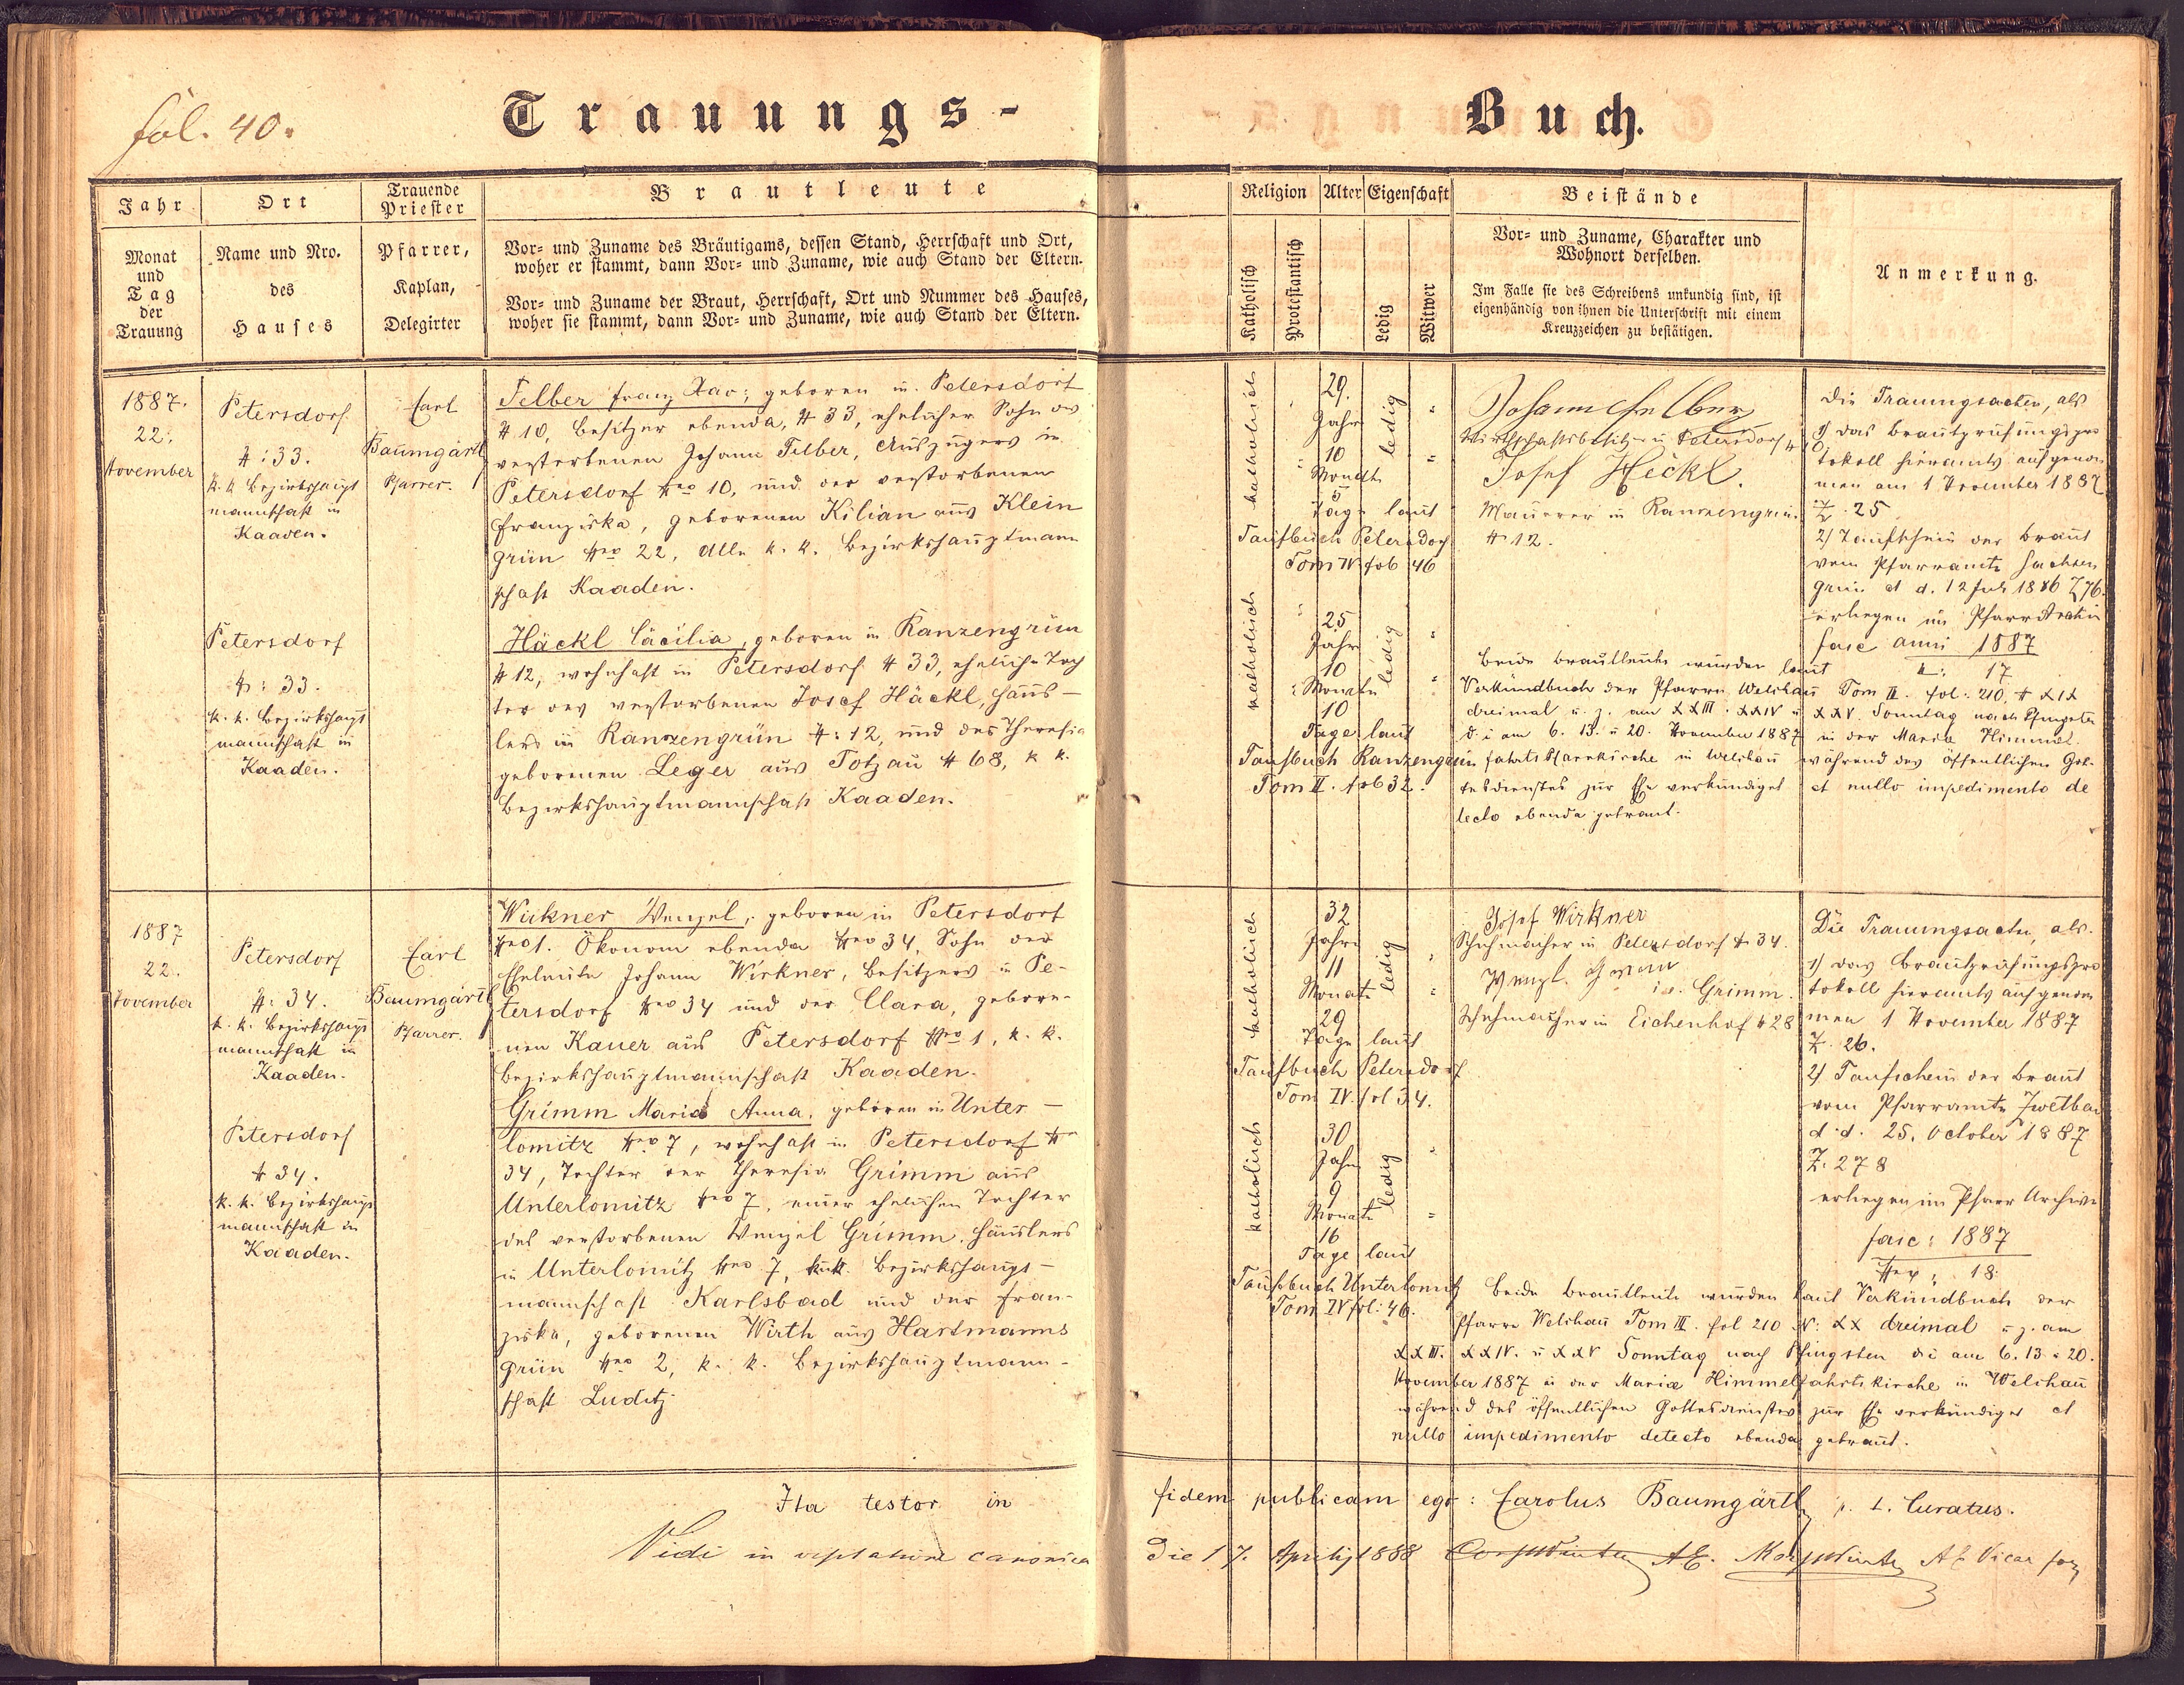 fol. 40.
Trauungs-
Buch.
Jahr
Monat
und
Tag
der
Trauung
Ort
Name und Nro.
des
Hauses
Trauende
Priester
Pfarrer,
Kaplan,
Delegirter
Brautleute
Vor= und Zuname des Bräutigams, dessen Stand, Herrschaft und Ort,
woher er stammt, dann Vor= und Zuname, wie auch Stand der Eltern.
Vor= und Zuname der Braut, Herrschaft, Ort und Nummer des Hauses,
woher sie stammt, dann Vor= und Zuname, wie auch Stand der Eltern.
Religion
Katholisch
Protestantisch
Alter
Eigenschaft
Ledig
Witwer
Beistände
Vor= und Zuname, Charakter und
Wohnort derselben.
Im Falle sie des Schreibens unkundig sind, ist
eigenhändig von ihnen die Unterschrift mit einem
Kreuzzeichen zu bestätigen.
Anmerkung.
1887.
22.
November
Petersdorf
#: 33.
k. k. Bezirkshaupt
mannschaft in
Kaaden.
Carl
Baumgärtl
Pfarrer.
Felber Franz Xav: geboren in Petersdorf
# 10, Besitzer ebenda, # 33, ehelicher Sohn des
verstorbenen Johann Felber, Auszügers in
Petersdorf Nro 10, und der verstorbenen
Franziska, geborenen Kilian aus Klein
grün Nro 22, Alle k. k. Bezirkshauptmann
schaft Kaaden.
katholisch
29.
Jahre
10
Monate
5
Tage laut
ledig
Taufbuch Petersdorf
Tom IV fol 46
Johann Felber
Wirthschaftsbesitzer in Petersdorf # 10
Josef Heckl.
Maurer in Ranzengrün
# 12.
Die Trauungsacten, als
1) das Brautprüfungspro
tokoll hieramts aufgenom
men am 1 November 1887
Z. 25
2) Taufschein der Braut
vom Pfarramte Sachsen
grün d d. 12 Juli 1886 Z 76.
erliegen im Pfarr Archiv
fasc anni 1887
#: 17
Petersdorf
#: 33.
k. k. Bezirkshaupt
mannschaft in
Kaaden.
Häckl Cäcilia, geboren in Ranzengrün
# 12, wohnhaft in Petersdorf # 33, eheliche Toch
ter des verstorbenen Josef Häckl, Häus-
lers in Ranzengrün #: 12, und der Theresia
geborenen Leger aus Totzau # 68, k k.
Bezirkshauptmannschaft Kaaden.
katholisch
25
Jahre
10
Monate
10
Tage laut
ledig
Taufbuch Ranzengrün
Tom II. fol 32.
Beide Brautleute wurden laut
Verkündbuch der Pfarre Welchau Tom III. fol: 210, # XIX
dreimal u. z. am XXIII. XXIV u XXV. Sonntag nach Pfingsten
d. i am 6. 13. u 20. November 1887 in der Mariä Himmel
fahrts Pfarrkirche in Welchau während des öffentlichen Got-
tesdienstes zur Ehe verkündiget et nullo impedimento de
tecto ebenda getraut.
1887
22.
November
Petersdorf
#: 34.
k. k. Bezirkshaupt
mannschaft in
Kaaden.
Carl
Baumgärtl
Pfarrer.
Wirkner Wenzel, geboren in Petersdorf
Nro 1. Ökonom ebenda Nro 34, Sohn der
Eheleute Johann Wirkner, Besitzers in Pe-
tersdorf Nro 34 und der Clara, gebore-
nen Kauer aus Petersdorf Nro 1, k. k.
Bezirkshauptmannschaft Kaaden.
katholisch
32
Jahre
11
Monate
29
Tage laut
ledig
Taufbuch Petersdorf
Tom IV. fol 34.
Josef Wirkner
Schuhmacher in Petersdorf # 34.
Wenzl
Grimm.
Schuhmacher in Eichenhof # 28
Die Trauungsacten, als.
1) das Brautprüfungspro
tokoll hieramts aufgenom
men 1 November 1887
Z. 26.
2) Taufschein der Braut
vom Pfarramte Zwetbau
d. d. 25. October 1887
Z. 278
erliegen im Pfarr Archive
fasc: 1887
Nro: 18.
Petersdorf
# 34.
k. k. Bezirkshaupt
mannschaft in
Kaaden.
Grimm Maria Anna, geboren in Unter-
lomitz Nro 7, wohnhaft in Petersdorf Nr
34, Tochter der Theresia Grimm aus
Unterlomitz Nro 7, einer ehelichen Tochter
des verstorbenen Wenzel Grimm, Häuslers
in Unterlomitz Nro 7, k. k. Bezirkshaupt-
mannschaft Karlsbad und der Fran-
ziska, geborenen Wirth aus Hartmanns
grün Nro 2, k. k. Bezirkshauptmann-
schaft Luditz
katholisch
30
Jahre
9
Monate
16
Tage laut
ledig
Taufbuch Unterlomitz
Tom IV fol: 46.
Beide Brautleute wurden laut Verkündbuch der
Pfarre Welchau Tom III. fol 210 N: XX dreimal u. z. am
XXIII. XXIV. u XXV Sonntag nach Pfingsten d i am 6. 13 u 20.
November 1887 in der Mariæ Himmelfahrts kirche in Welchau
während des öffentlichen Gottesdienstes zur Ehe verkündiget et
nullo impedimento detecto ebenda getraut.
Ita testor in fidem publicam ego: Carolus Baumgärtl p. t. Curatus.
Vidi in visitatione canonica die 17. Aprilis 1888